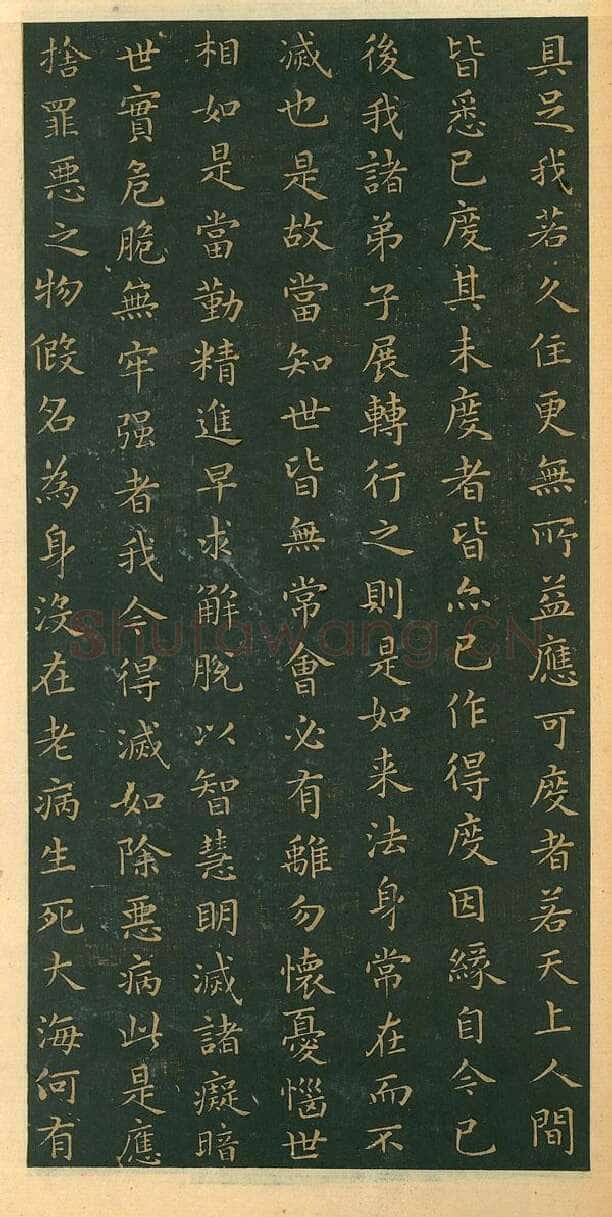 具足我若久住更無所益應可度者若天上人間
皆悉已度其未度者皆亦已作得度因緣自今已
後我諸弟子展轉行之則是如来法身常在而不
滅也是故當知世皆無常會必有離勿懷憂惱世
相如是當勤精進早求解脫以智慧明滅諸癡暗
世實危脆無牢强者我今得滅如除惡病此是應
捨罪惡之物假名為身沒在老病生死大海何有
Shufawang.CN